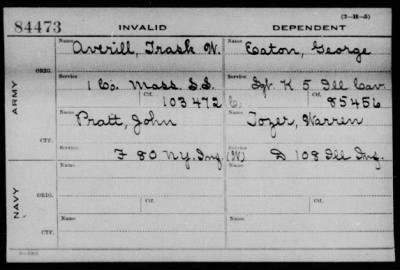 (3-H-5)
84473 INVALID DEPENDENT
Name Averill, Trask W. Name Eaton, George
ORIG.
Service 1 Co. Mass. S.S. Service Sgt. K 5 Ill Cav.
ARMY
Ctf. 103472 C, Ctf. 85456
Name Pratt, John Name Tozer, Warren
CTF.
Service F 80 N.Y. Inf. Service (W) D 108 Ill Inf.
Name Name
NAVY
ORIG. Ctf. Ctf.
Name Name
CTF.